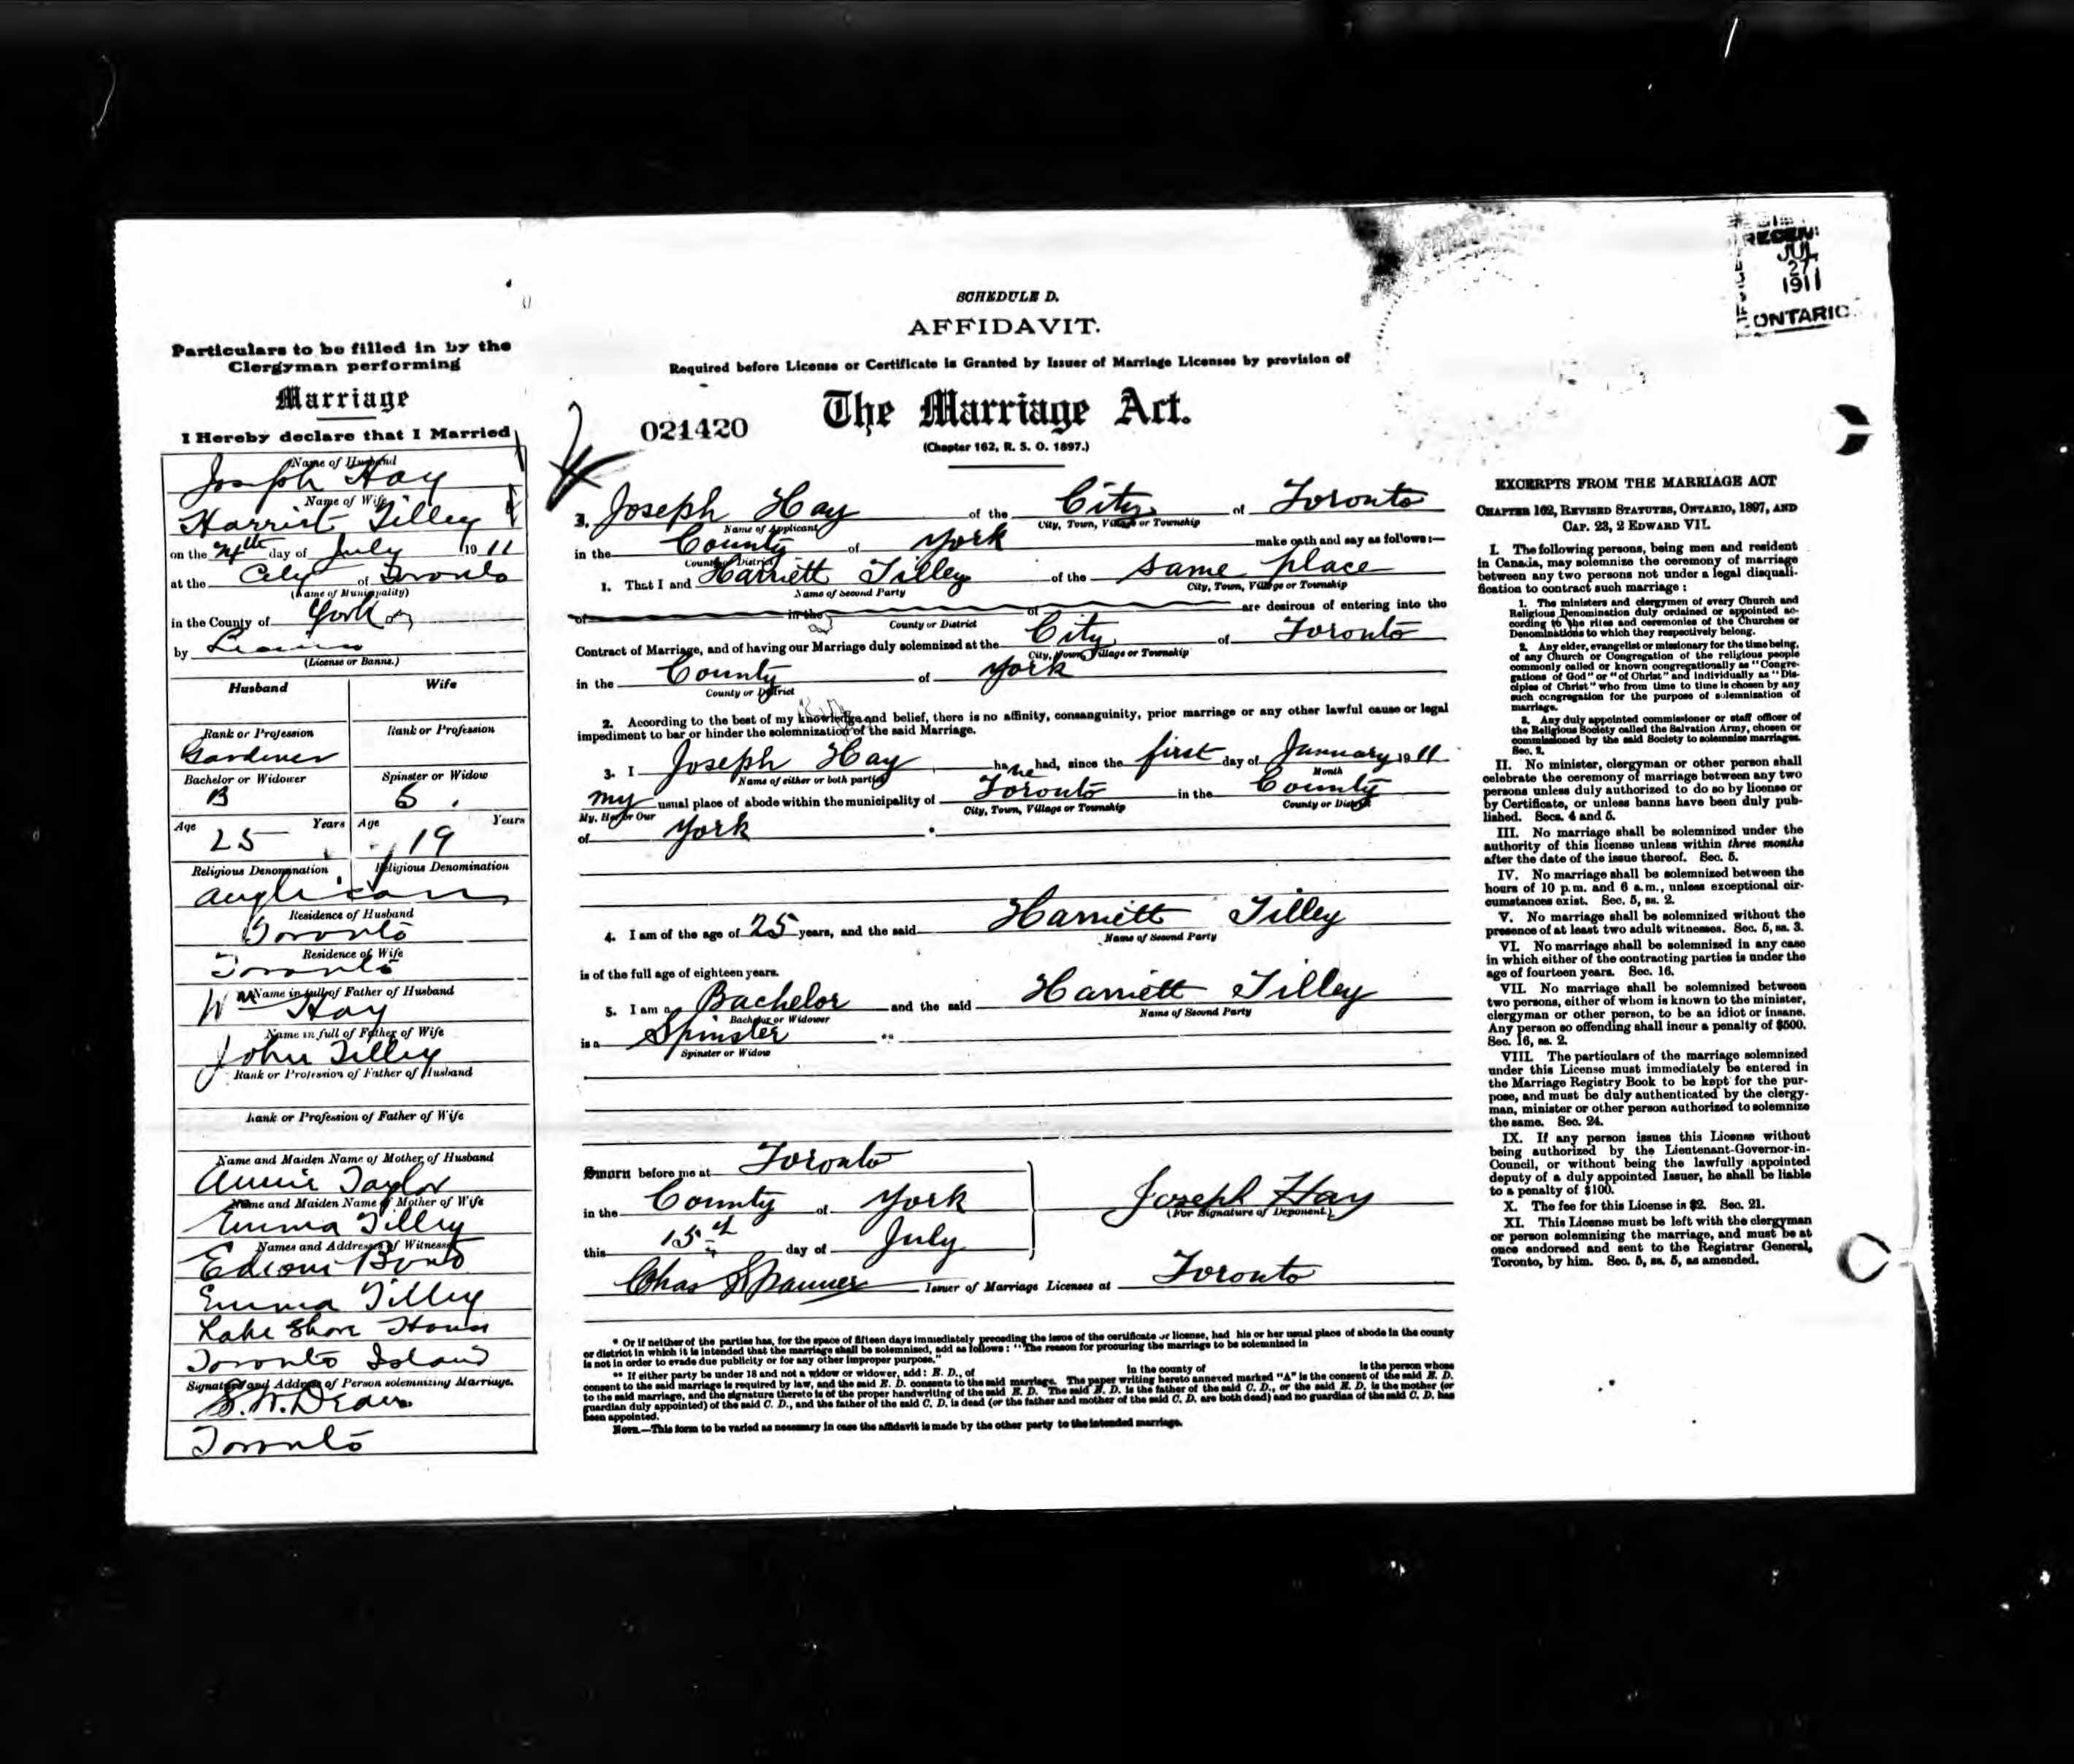 REGI
RECEIV
JUL
27
1911
ONTARIO
Particulars to be filled in by the
Clergyman performing
Marriage
I Hereby declare that I Married
Name of Husband
Joseph Hay
Name of Wife
Harriet Tilley
on the day of July 1911
at the City of Toronto
(Name of Municipality)
in the County of York
by
(License or Banns.)
Husband Wife
Rank or Profession Rank or Profession
Gardener
Bachelor or Widower Spinster or Widow
B S.
Age 25 Years Age 19 Years
Religious Denomination Religious Denomination
Anglican
Residence of Husband
Toronto
Residence of Wife
Toronto
Name in full of Father of Husband
Wm Hay
Name in full of Father of Wife
John Tilley
Rank or Profession of Father of Husband
Rank or Profession of Father of Wife
Name and Maiden Name of Mother of Husband
Annie Taylor
Name and Maiden Name of Mother of Wife
Emma Tilley
Names and Addresses of Witnesses
Emma Tilley
Lake Shore
Toronto Island
Signature and Address of Person solemnizing Marriage.
Toronto
SCHEDULE D.
AFFIDAVIT.
Required before License or Certificate is Granted by Issuer of Marriage Licenses by provision of
021420 The Marriage Act.
(Chapter 162, R. S. O. 1897.)
Joseph Hay of the City of Toronto
Name of Applicant City, Town, Village or Township
in the County of York make oath and say as follows:—
County or District
1. That I and Harriett Tilley of the same place
Name of Second Party City, Town, Village or Township
of in the of are desirous of entering into the
County or District
Contract of Marriage, and of having our Marriage duly solemnized at the City of Toronto
City, Town, Village or Township
in the County of York
County or District
2. According to the best of my knowledge and belief, there is no affinity, consanguinity, prior marriage or any other lawful cause or legal
impediment to bar or hinder the solemnization of the said Marriage.
3. I Joseph Hay have had, since the first day of January 1911
Name of either or both parties Month
my usual place of abode within the municipality of Toronto in the County
My, Her or Our City, Town, Village or Township County or District
of York
4. I am of the age of 25 years, and the said Harriett Tilley
Name of Second Party
is of the full age of eighteen years.
5. I am a Bachelor and the said Harriett Tilley
Bachelor or Widower Name of Second Party
is a Spinster **
Spinster or Widow
Sworn before me at Toronto
in the County of York
this 15th day of July
Joseph Hay
(For Signature of Deponent.)
Chas Issuer of Marriage Licenses at Toronto
* Or if neither of the parties has, for the space of fifteen days immediately preceding the issue of the certificate or license, had his or her usual place of abode in the county
or district in which it is intended that the marriage shall be solemnized, add as follows: "The reason for procuring the marriage to be solemnized in
is not in order to evade due publicity or for any other improper purpose."
** If either party be under 18 and not a widow or widower, add: E. D., of in the county of is the person whose
consent to the said marriage is required by law, and the said E. D. consents to the said marriage. The paper writing hereto annexed marked "A" is the consent of the said E. D.
to the said marriage, and the signature thereto is of the proper handwriting of the said E. D. The said E. D. is the father of the said C. D., or the said E. D. is the mother (or
guardian duly appointed) of the said C. D., and the father of the said C. D. is dead (or the father and mother of the said C. D. are both dead) and no guardian of the said C. D. has
been appointed.
NOTE.—This form to be varied as necessary in case the affidavit is made by the other party to the intended marriage.
EXCERPTS FROM THE MARRIAGE ACT
CHAPTER 162, REVISED STATUTES, ONTARIO, 1897, AND
CAP. 23, 2 EDWARD VII.
I. The following persons, being men and resident
in Canada, may solemnize the ceremony of marriage
between any two persons not under a legal disquali-
fication to contract such marriage:
1. The ministers and clergymen of every Church and
Religious Denomination duly ordained or appointed ac-
cording to the rites and ceremonies of the Churches or
Denominations to which they respectively belong.
2. Any elder, evangelist or missionary for the time being,
of any Church or Congregation of the religious people
commonly called or known congregationally as "Congre-
gations of God" or "of Christ" and individually as "Dis-
ciples of Christ" who from time to time is chosen by any
such congregation for the purpose of solemnization of
marriage.
3. Any duly appointed commissioner or staff officer of
the Religious Society called the Salvation Army, chosen or
commissioned by the said Society to solemnize marriages.
Sec. 2.
II. No minister, clergyman or other person shall
celebrate the ceremony of marriage between any two
persons unless duly authorized to do so by license or
by Certificate, or unless banns have been duly pub-
lished. Secs. 4 and 5.
III. No marriage shall be solemnized under the
authority of this license unless within three months
after the date of the issue thereof. Sec. 5.
IV. No marriage shall be solemnized between the
hours of 10 p.m. and 6 a.m., unless exceptional cir-
cumstances exist. Sec. 5, ss. 2.
V. No marriage shall be solemnized without the
presence of at least two adult witnesses. Sec. 5, ss. 3.
VI. No marriage shall be solemnized in any case
in which either of the contracting parties is under the
age of fourteen years. Sec. 16.
VII. No marriage shall be solemnized between
two persons, either of whom is known to the minister,
clergyman or other person, to be an idiot or insane.
Any person so offending shall incur a penalty of $500.
Sec. 16, ss. 2.
VIII. The particulars of the marriage solemnized
under this License must immediately be entered in
the Marriage Registry Book to be kept for the pur-
pose, and must be duly authenticated by the clergy-
man, minister or other person authorized to solemnize
the same. Sec. 24.
IX. If any person issues this License without
being authorized by the Lieutenant-Governor-in-
Council, or without being the lawfully appointed
deputy of a duly appointed Issuer, he shall be liable
to a penalty of $100.
X. The fee for this License is $2. Sec. 21.
XI. This License must be left with the clergyman
or person solemnizing the marriage, and must be at
once endorsed and sent to the Registrar General,
Toronto, by him. Sec. 5, ss. 5, as amended.